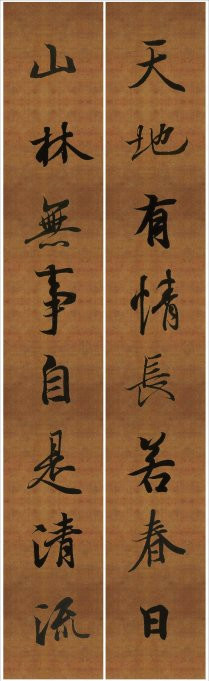 天地有情長若春日
山林無事自是清流